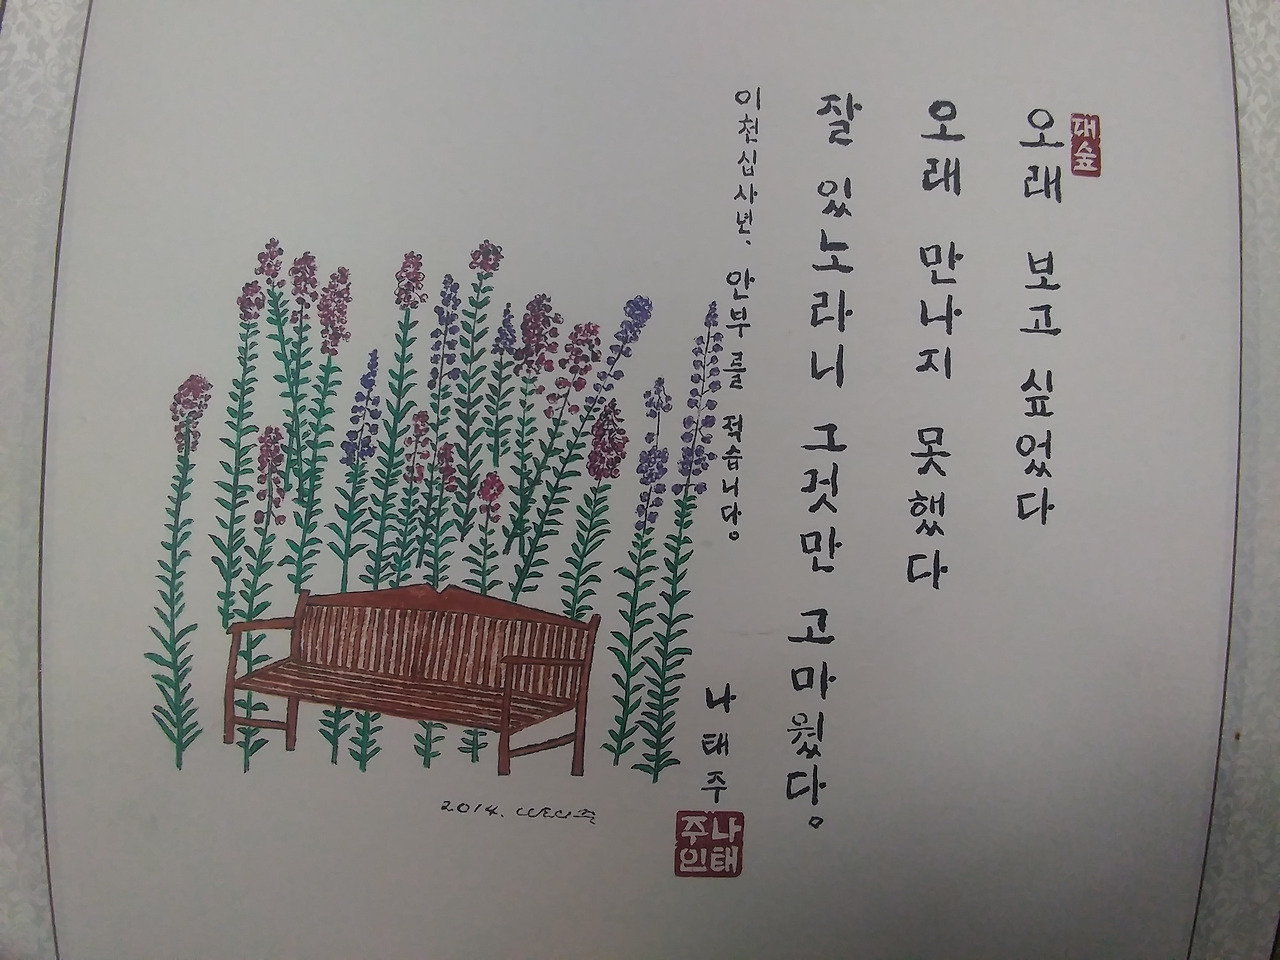 대숲
오래 보고 싶었다
오래 만나지 못했다
잘 있노라니 그것만 고마웠다。
이천십사년、 안부를 적습니다。
나태주
나태주인
2014.